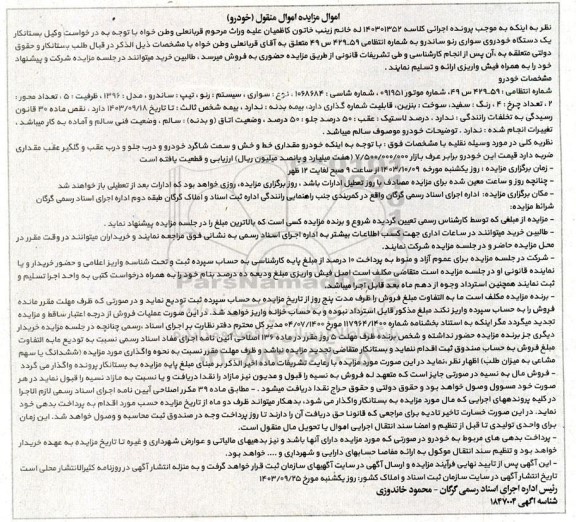 اموال مزایده اموال منقول (خودرو)
نظر به اینکه به موجب پرونده اجرائی کلاسه ۱۴۰۳۰۱۳۵۲ له خانم زینب خاتون کاظمیان علیه وراث مرحوم قربانعلی وطن خواه با توجه به در خواست وکیل بستانکار
یک دستگاه خودروی سواری رنو ساندرو به شماره انتظامی ۵۹ـ۴۲۹ س ۴۹ متعلق به آقای قربانعلی وطن خواه با مشخصات ذیل الذکر در قبال طلب بستانکار و حقوق
دولتی متعلقه به ،آن پس از انجام کارشناسی و طی تشریفات قانونی از طریق مزایده حضوری به فروش میرسد . طالبین خرید میتوانند در جلسه مزایده شرکت و پیشنهاد
خود را به همراه فیش واریزی ارائه و تسلیم نمایند .
مشخصات خودرو
شماره انتظامی : ۵۹ـ۴۲۹ س ۴۹ ، شماره موتور ۰۹۱۹۵۱ ، شماره شاسی : ۱۰۶۸۶۸۴ ، نوع : سواری ، سیستم : رنو ، تیپ : ساندرو ، مدل : ۱۳۹۶ ، ظرفیت : ۵ ، تعداد محور :
۲ ، تعداد چرخ : ۴ ، رنگ : سفید، سوخت : بنزین، قابلیت شماره گذاری دارد، بیمه بدنه : ندارد ، بیمه شخص ثالث : تا تاریخ ۱۴۰۳/۰۹/۱۸ دارد . نقص ماده ۳۰ قانون
رسیدگی به تخلفات رانندگی : ندارد . درصد لاستیک : عقب : ۵۰ درصد جلو : ۵۰ درصد ، وضعیت اتاق (و بدنه) : سالم ، وضعیت فنی سالم و آماده به کار میباشد ،
تغییرات انجام شده : ندارد . توضیحات خودرو موصوف سالم میباشد .
نظریه کلی در مورد وسیله نقلیه با مشخصات فوق : با توجه به اینکه خودرو مقداری خط و خش و سمت شاگرد خودرو و درب جلو و درب عقب و گلگیر عقب مقداری
ضربه دارد قیمت این خودرو برابر عرف بازار ۷/۵۰۰/۰۰۰/۰۰۰ (هفت میلیارد و پانصد میلیون ریال) ارزیابی و قطعیت یافته است
- زمان برگزاری مزایده : روز یکشنبه مورخه ۱۴۰۳/۱۰/۰۹ از ساعت ۹ صبح لغایت ۱۲ ظهر
- چنانچه روز و ساعت معین شده برای مزایده مصادف با روز تعطیل ادارات باشد ، روز برگزاری مزایده، روزی خواهد بود که ادارات بعد از تعطیلی باز خواهند شد
- مکان برگزاری مزایده: اداره اجرای اسناد رسمی گرگان واقع در کمربندی جنب راهنمایی رانندگی اداره ثبت اسناد و املاک گرگان طبقه دوم اداره اجرای اسناد رسمی گرگان
شرایط مزایده:
- مزایده از مبلغی که توسط کارشناس رسمی تعیین گردیده شروع و برنده مزایده کسی است که بالاترین مبلغ را در جلسه مزایده پیشنهاد نماید .
- طالبین خرید میتوانند در ساعات اداری جهت کسب اطلاعات بیشتر به اداره اجرای اسناد رسمی به نشانی فوق مراجعه نمایند و خریداران میتوانند در وقت مقرر در
محل مزایده حاضر و در جلسه مزایده شرکت نمایند.
- شرکت در جلسه مزایده برای عموم آزاد و منوط به پرداخت ۱۰ درصد از مبلغ پایه کارشناسی به حساب سپرده ثبت و تحت شناسه واریز اعلامی و حضور خریدار و یا
نماینده قانونی او در جلسه مزایده است متقاضی مکلف است اصل فیش واریزی مبلغ ودیعه ده درصد بنام خود را به همراه درخواست کتبی به واحد اجرا تسلیم و
ثبت نمایند همچنین استرداد وجوه از دهم ماه بعد قابل اجرا میباشد.
- برنده مزایده مکلف است ما به التفاوت مبلغ فروش را ظرف مدت پنج روز از تاریخ مزایده به حساب سپرده ثبت تودیع نماید و در صورتی که ظرف مهلت مقرر مانده
فروش را به حساب سپرده واریز نکند مبلغ مذکور قابل استرداد نبوده و به حساب خزانه واریز خواهد شد. در این صورت عملیات فروش از درجه اعتبار ساقط و مزایده
تجدید میگردد مگر اینکه به استناد بخشنامه شماره ۱۷۹۶۴/۱۴۰۰ مورخ ۰۴/۰۷/۱۴۰۰ مدیر کل محترم دفتر نظارت بر اجرای اسناد رسمی چنانچه در جلسه مزایده خریدار
دیگری جز برنده مزایده حضور نداشته و شخص برنده ظرف مهلت ۵ روز مقرر در ماده ۱۳۶ اصلاحی آئین نامه اجرای مفاد اسناد رسمی نسبت به تودیع مابه التفاوت
مبلغ فروش به حساب صندوق ثبت اقدام ننماید و بستانکار متقاضی تجدید مزایده نباشد و ظرف مهلت مقرر نسبت به نحوه واگذاری مورد مزایده (ششدانگ یا سهم
مشاعی به میزان طلب) اظهار نظر نماید در این صورت مورد مزایده با رعایت تشریفات ماده اخیر الذکر بر مبنای مبلغ پایه مزایده به بستانکار پرونده واگذار می گردد
- فروش مال به نسیه در صورتی جایز است که متعهد له فروش به نسیه را قبول و مدیون نیز مازاد را نقدا دریافت و یا نسبت به مازاد نسیه را قبول نماید در هر
صورت خود مسوول وصول خواهد بود و حقوق دولتی و حقوق حراج نقدا دریافت میشود . - مطابق ماده ۳۹ مکرر اصلاحی آیین نامه اجرای اسناد رسمی لازم الاجرا
در کلیه پرونده‌های اجرایی که مال مورد مزایده به بستانکار واگذار می شود، بدهکار میتواند ظرف دو ماه از تاریخ مزایده حسب مورد اقدام به پرداخت بدهی خود
نماید. در این صورت خسارت تاخیر تادیه برای مراجعی که قانونا حق دریافت آن را دارند تا روز پرداخت وجه در صندوق ثبت محاسبه و وصول خواهد شد. این زمان
برای واحدی تولیدی تا قبل از تنظیم و امضا سند انتقال اجرایی اموال یا تحویل مال منقول است.
- پرداخت بدهی های مربوط به خودرو در صورتی که مورد مزایده دارای آنها باشد و نیز بدهیهای مالیاتی و عوارض شهرداری و غیره تا تاریخ مزایده به عهده خریدار
خواهد بود و تنظیم سند انتقال موکول به ارائه مفاصا حسابهای دارایی و شهرداری و .... خواهد بود.
- این آگهی پس از تایید نهایی فرآیند مزایده و ارسال آگهی در سایت آگهیهای سازمان ثبت قرار خواهد گرفت و به منزله انتشار آگهی در روزنامه کثیرالانتشار محلی است
تاریخ انتشار آگهی در سایت سازمان ثبت اسناد و املاک کشور: روز یکشنبه مورخ ۱۴۰۳/۰۹/۲۵
رئیس اداره اجرای اسناد رسمی گرگان - محمود خاندوزی
شناسه آگهی ۱۸۴۷۰۰۴